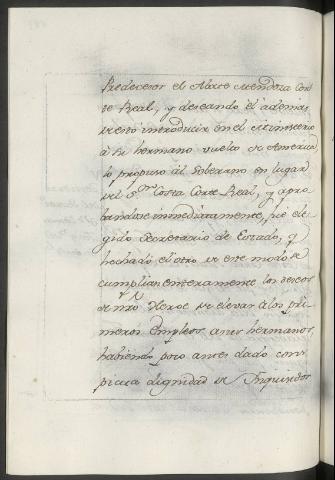 Predecesor el Abate Mendoza Cor-
te Real, y deseando el ademas
de esto introducir en el Ministerio
à su hermano vuelto de America
lo propuso al Soberano en lugar
del S.or Costa Corte Real, y apro-
bandose immediatamente, fue ele-
gido Secretario de Estado, y
hechado el otro de este modo se
cumplian enteramente los deseos
de nro Heroe de elevar à los pri-
meros Empleos à sus hermanos,
habiendo poco antes dado cons-
picua dignidad de Inquisidor